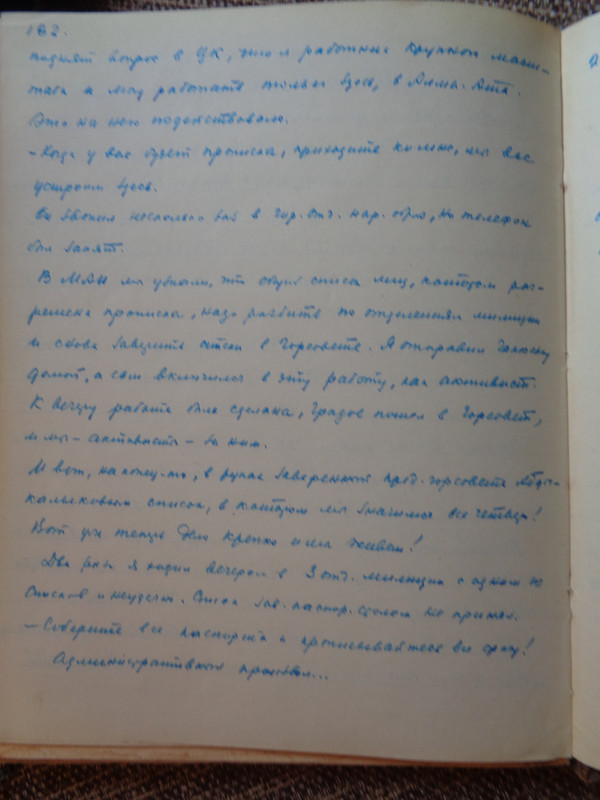 182.
поднят вопрос в ЦК, что я работник крупного масш-
таба и могу работать только здесь, в Алма-Ата.
Это на него подействовало.
– Когда у вас будет прописка, приходите ко мне, мы вас
устроим здесь.
Он звонил несколько раз в гор. отд. нар. обр., но телефон
был занят.
В МАИ мы узнали, что общий список лиц, которым раз-
решена прописка, надо разбить по отделениям милиции
и снова заверить списки в Горсовете. Я отправил
домой, а сам включился в эту работу, как активист.
К вечеру работа была сделана, Градов пошел в Горсовет,
и мы – активисты – за ним.
И вот, наконец-то, в руках заверенный пред. горсовета
список, в котором мы значимся все четверо!
Вот уж теперь дело крепко
Два раза я ходил вечером в 3 отд. милиции с одним из
списков и неудачно. Список зав. паспор. столом не принял.
– Соберите все паспорта и прописывайтесь все сразу!
Административный произвол...